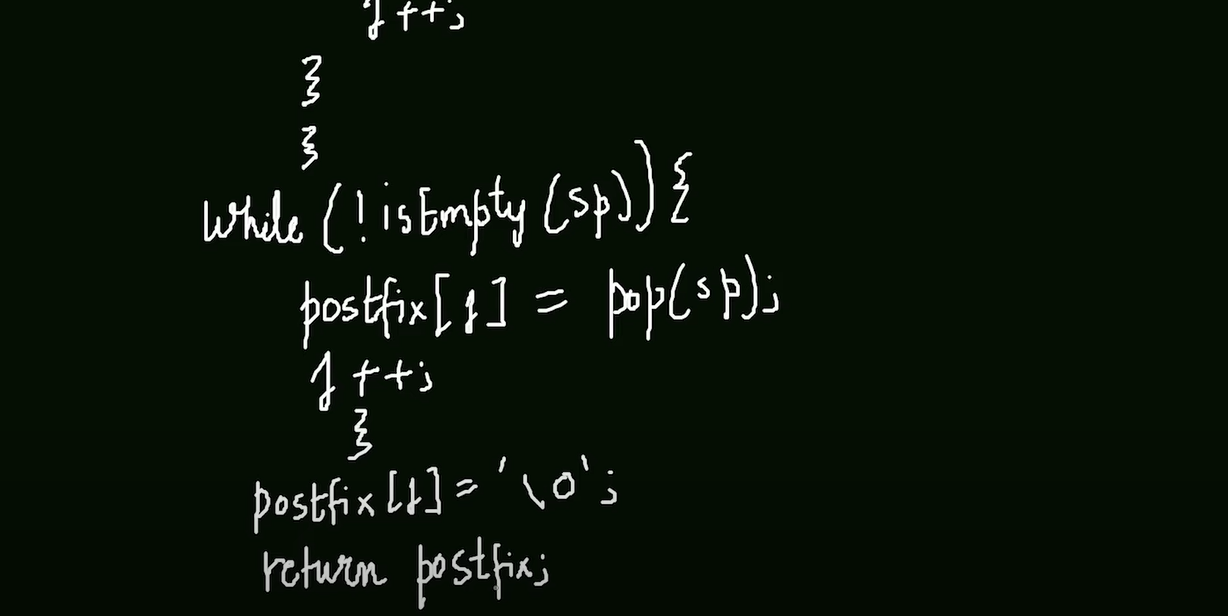 j++;
}
}
while (!isEmpty(sp)) {
postfix[j] = pop(sp);
j++;
}
postfix[j] = '\0';
return postfix;